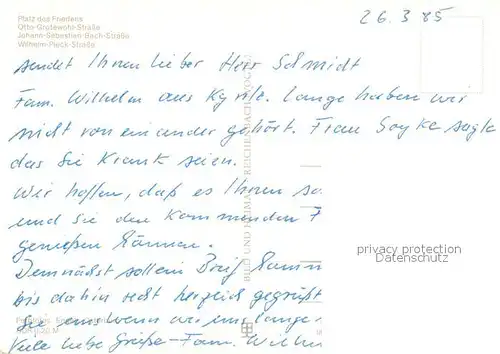 Platz des Friedens
Otto-Grotewohl-Straße
Johann-Sebastian-Bach-Straße
Wilhelm-Pieck-Straße
26.3.85
sendet Ihnen lieber Herr Schmidt
Fam. Wilhelm aus Kyritz. Lange haben wir
nicht von einander gehört. Frau Soyke sagte
das Sie Krank seien.
Wir hoffen, daß es Ihnen so
und Sie den kommenden F
genießen können.
Demnächst soll ein Brief komm
bis dahin seid herzlich gegrüßt
Sie wenn wir uns lange
Viele liebe Grüße Fam. Wilhe
BILD UND HEIMAT REICHENBACH
privacy protection
Datenschutz